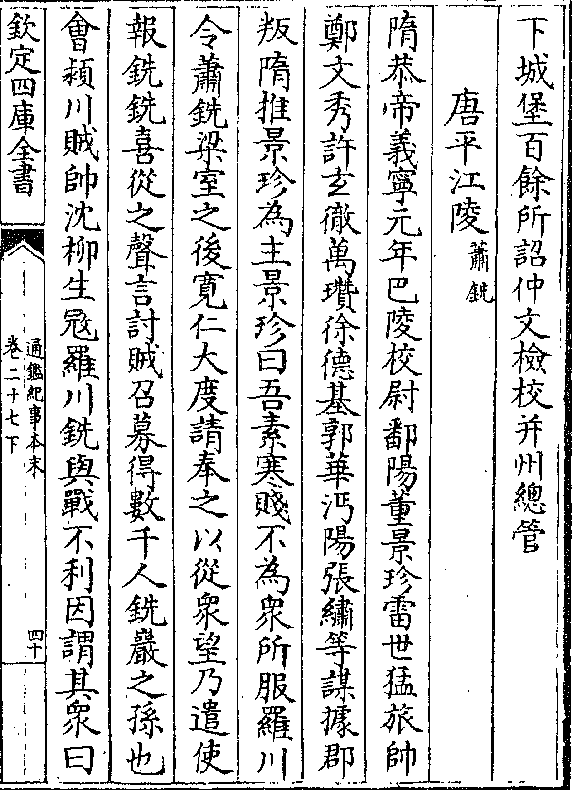 下城堡百餘所詔仲文檢校并州總管
唐平江陵 蕭銑
隋恭帝義寧元年巴陵校尉鄱陽董景珍雷世猛旅帥
鄭文秀許玄徹萬瓚徐德基郭華沔陽張繡等謀據郡
叛隋推景珍為主景珍曰吾素寒賤不為衆所服羅川
令蕭銑梁室之後寛仁大度請奉之以從衆望乃遣使
報銑銑喜從之聲言討賊召募得數千人銑巖之孫也
會潁川賊帥沈柳生冦羅川銑與戰不利因謂其衆曰
欽定四庫全書
通鑑紀事本末
卷二十七下
四十